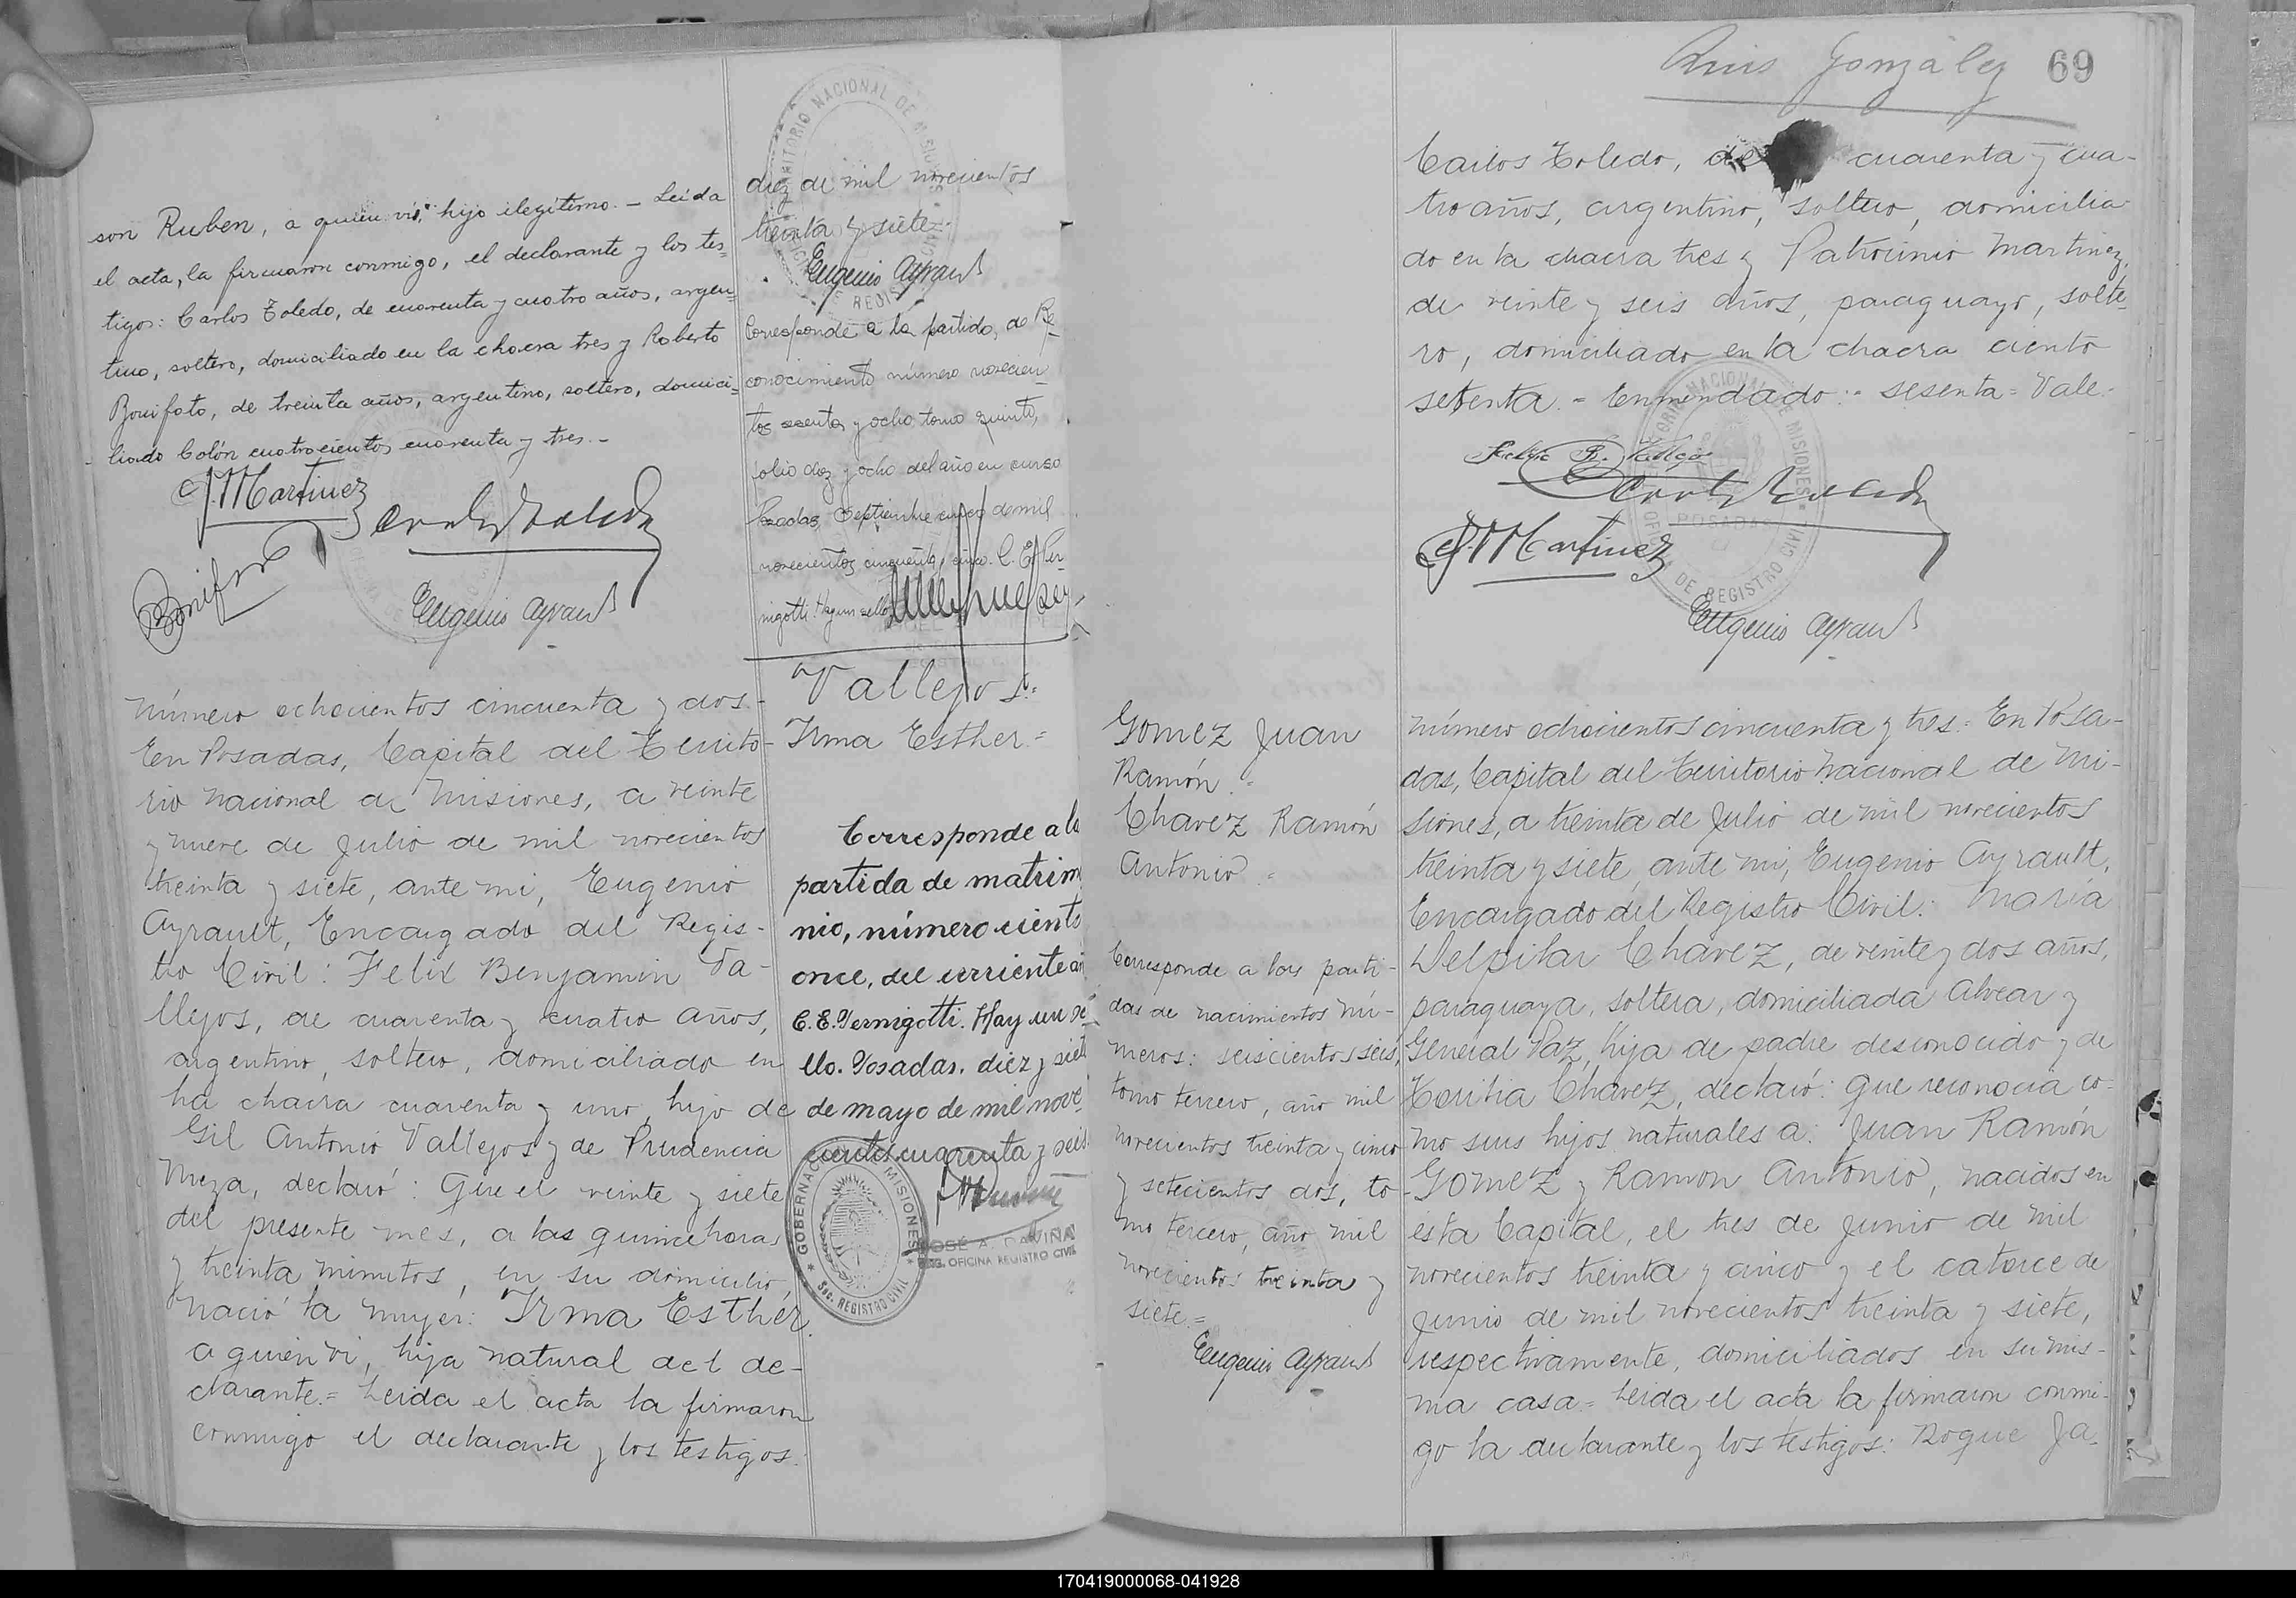 son Ruben, a quien vi, hijo ilegítimo. - Leida
el acta, la firmaron conmigo, el declarante y los tes=
tigos: Carlos Toledo, de cuarenta y cuatro años, argen=
tino, soltero, domiciliado en la chacra tres y Roberto
Bonifato, de treinta años, argentino, soltero, domici=
liado Colón cuatrocientos cuarenta y tres.-
J. Martinez
Carlos Toledo
Bonifato
Eugenio Ayrault
número ochocientos cincuenta y dos.-
En Posadas, Capital del Territo-
rio nacional de Misiones, a veinte
y nueve de Julio de mil novecientos
treinta y siete, ante mi, Eugenio
Ayrault, Encargado del Regis-
tro Civil: Felix Benjamin Va-
llejos, de cuarenta y cuatro años,
argentino, soltero, domiciliado en
la chacra cuarenta y uno, hijo de
Gil Antonio Vallejos y de Prudencia
Meza, declaró: Que el veinte y siete
del presente mes, a las quince horas
y treinta minutos, en su domicilio,
nació la mujer: Irma Esther
a quien vi, hija natural del de-
clarante.= Leida el acta la firmaron
conmigo el declarante y los testigos:
diez de mil novecientos
treinta y siete.
Eugenio Ayrault
Corresponde a la partida, de Re-
conocimiento número novecien-
tos y ocho tomo quinto,
folio diez y ocho del año en curso
Posadas, Septiembre cinco de mil
novecientos cincuenta, C. E.
nigotti. Hay un sello
Vallejos.=
Irma Esther=
Corresponde a la
partida de matrim
nio, número ciento
once, del corriente añ
C. E. Vernigotti. Hay un se
llo. Posadas, diez y siete
de mayo de mil nove
cientos cuarenta y seis.
GOBERNAC MISIONES
* SEC. REGISTRO CIVIL *
JOSÉ A. DAVIÑA
ENC. OFICINA REGISTRO CIVIL
TERRITORIO NACIONAL DE MISIONES
Luis González 69
Carlos Toledo, de cuarenta y cua-
tro años, argentino, soltero, domicilia-
do en la chacra tres y Patrocinio Martinez,
de veinte y seis años, paraguayo, solte-
ro, domiciliado en la chacra ciento
setenta.= Enmendado:= sesenta= Vale.
Felix B. Vallejos
Carlos Toledo
P. Martinez
Eugenio Ayrault
TERRITORIO NACIONAL DE MISIONES
POSADAS
OFICINA DE REGISTRO CIVIL
Gomez Juan
Ramón.=
Chavez Ramón
Antonio.=
Corresponde a las parti-
das de nacimientos nú-
meros: seiscientos seis,
tomo tercero, año mil
novecientos treinta y cinco
y setecientos dos, to-
mo tercero, año mil
novecientos treinta y
siete.=
Eugenio Ayrault
número ochocientos cincuenta y tres.= En Posa-
das, Capital del Territorio nacional de Mi-
siones, a treinta de Julio de mil novecientos
treinta y siete, ante mi, Eugenio Ayrault,
Encargado del Registro Civil: María
Delpilar Chavez, de veinte y dos años,
paraguaya, soltera, domiciliada Alvear y
General Paz, hija de padre desconocido y de
Chavez, declaró: Que reconocia co-
mo sus hijos naturales a: Juan Ramón
Gomez y Ramon Antonio, nacidos en
esta Capital, el tres de Junio de mil
novecientos treinta y cinco y el catorce de
Junio de mil novecientos treinta y siete,
respectivamente, domiciliados en su mis-
ma casa.= Leida el acta la firmaron conmi-
go la declarante y los testigos: Roque Ja-
170419000068-041928